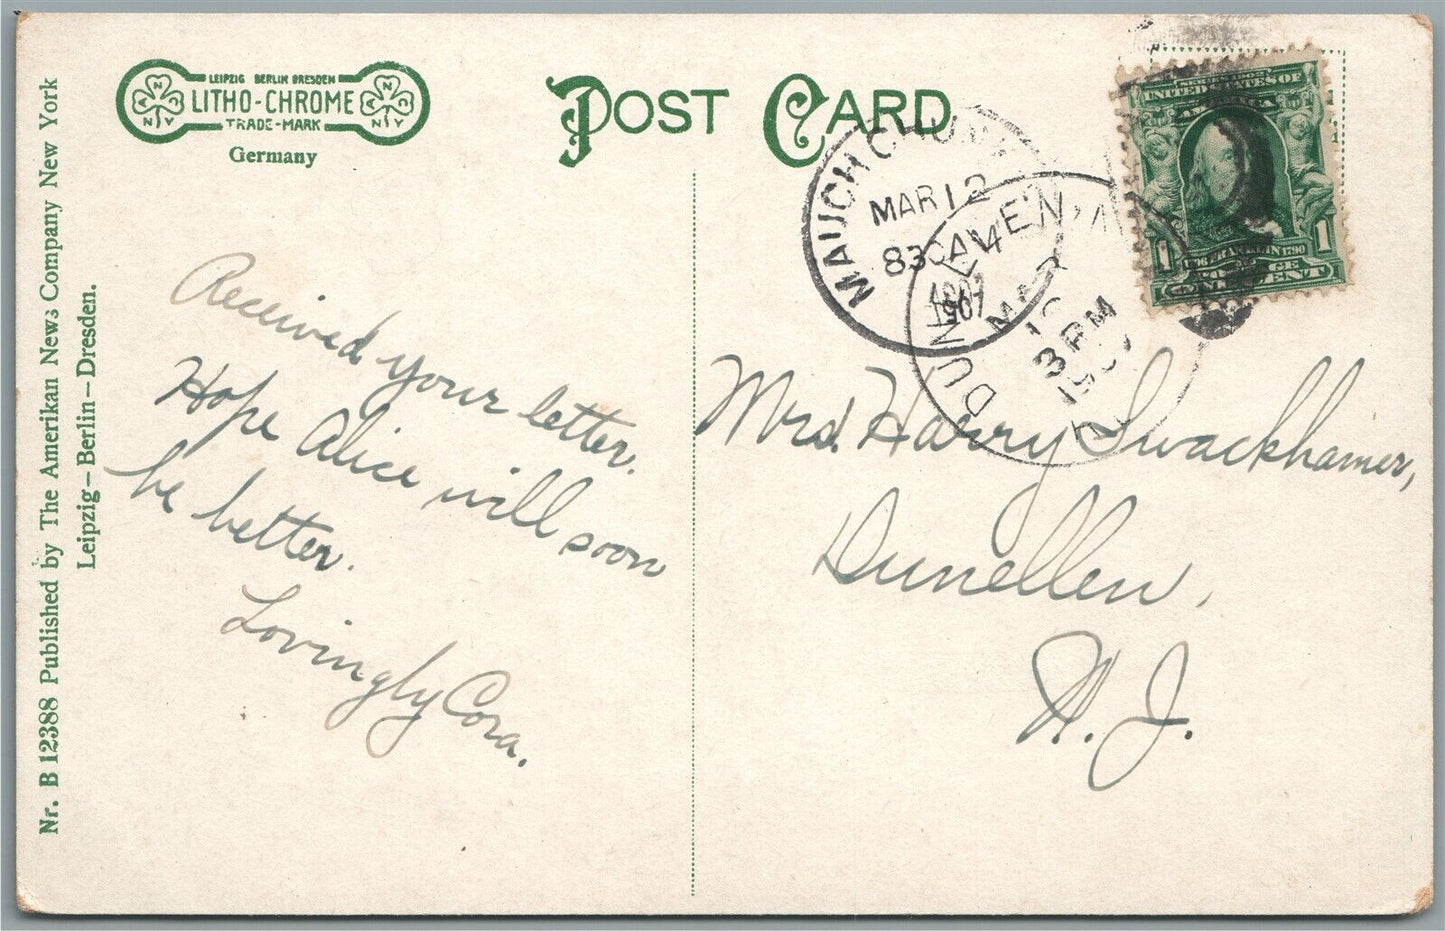 LEIPZIG BERLIN DRESDEN
LITHO-CHROME
TRADE-MARK
Germany
POST CARD
Nr. B 12388 Published by The Amerikan News Company New York
Leipzig–Berlin–Dresden.
MAUCH CHUNK
MAR 12
830A
1907
DUNELLEN
MAR
3 PM
SERIES 1902
UNITED STATES OF
AMERICA
FRANKLIN 1790
1 1
Received your letter.
Hope Alice will soon
be better.
Lovingly Cora.
Mrs. Harry Swackhamer,
Dunellen,
N. J.